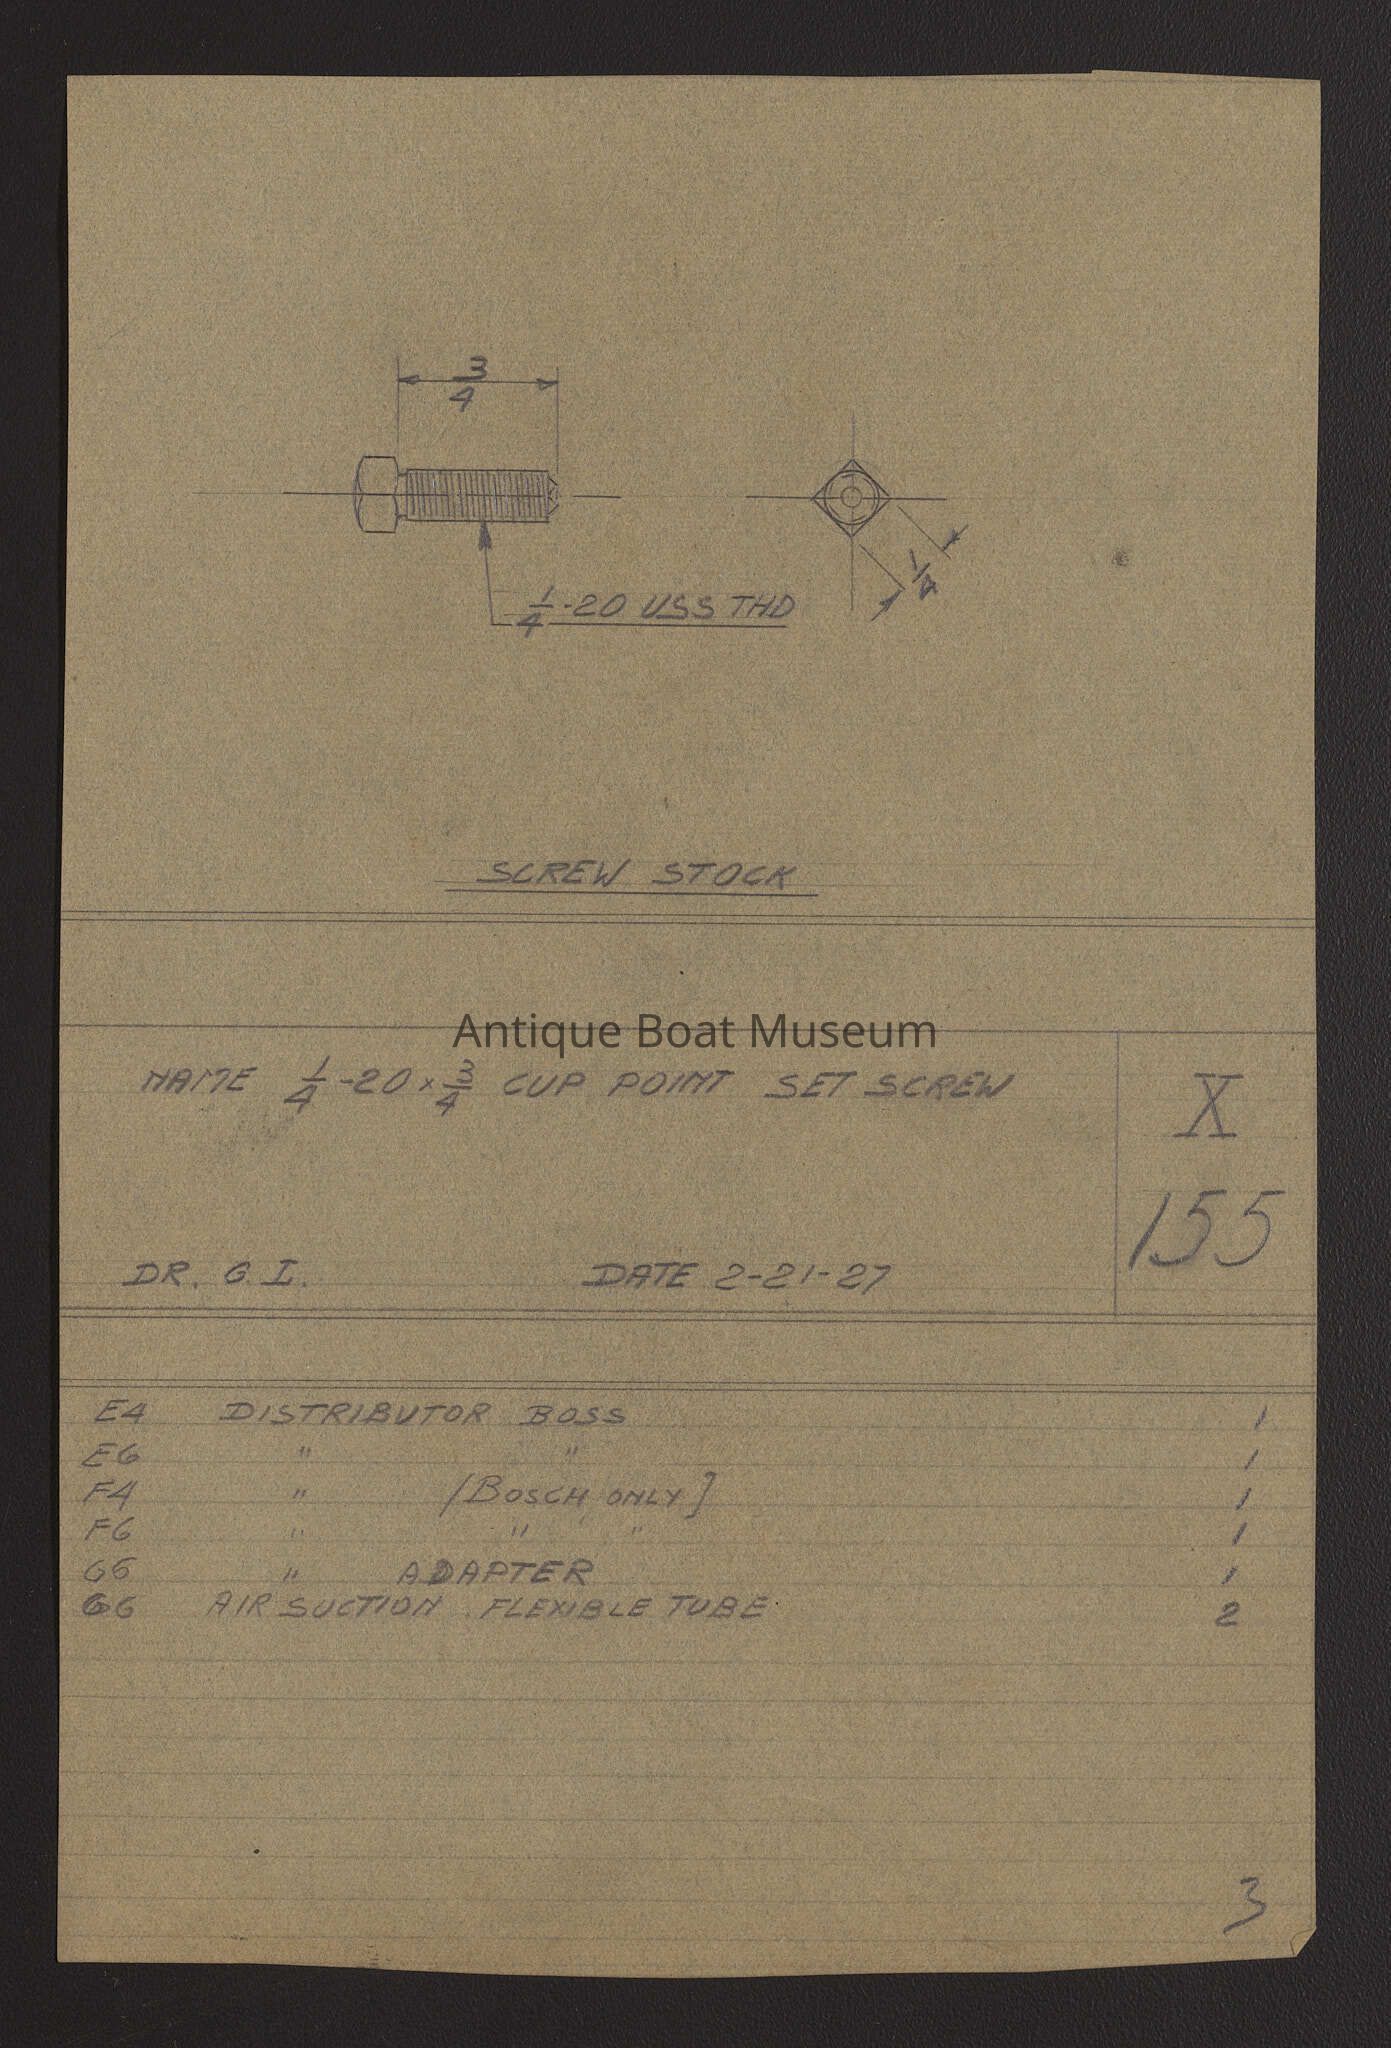 3/4
1/4
1/4-20 USS THD
SCREW STOCK
Antique Boat Museum
NAME 1/4-20 x 3/4 CUP POINT SET SCREW
X
155
DR. G. I. DATE 2-21-27
E4 DISTRIBUTOR BOSS 1
E6 " " 1
F4 " (BOSCH ONLY] 1
F6 " " " 1
G6 " ADAPTER 1
G6 AIR SUCTION FLEXIBLE TUBE 2
3